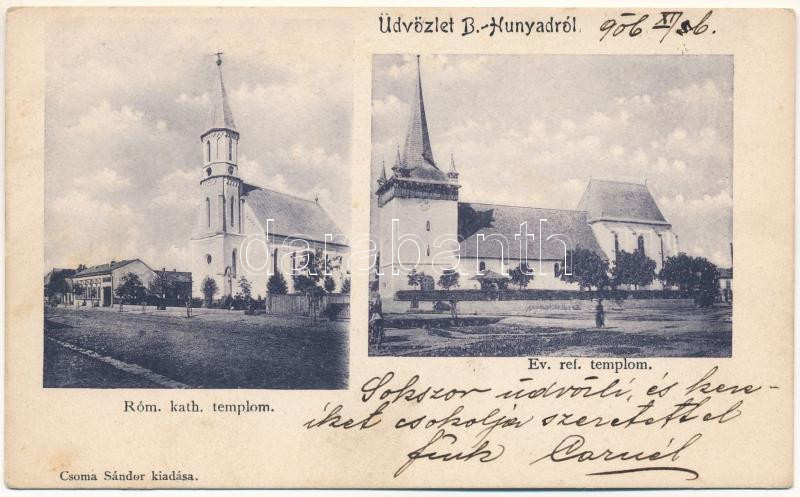 Üdvözlet B.-Hunyadról.
906 XI/26.
darabanth.com
Róm. kath. templom.
Ev. ref. templom.
Sokszor üdvözli, és keze-
iket csokolja szeretettel
fiuk Cornél
Csoma Sándor kiadása.